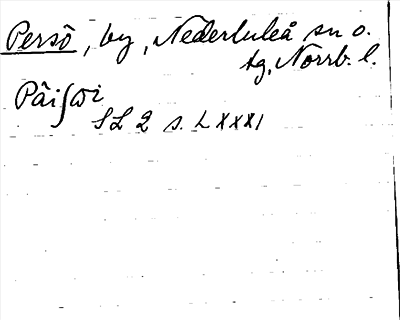 Persö, by, Nederluleå sn o.
tg, Norrb. l.
Pâiʃωi
SL 2 s. LXXXI